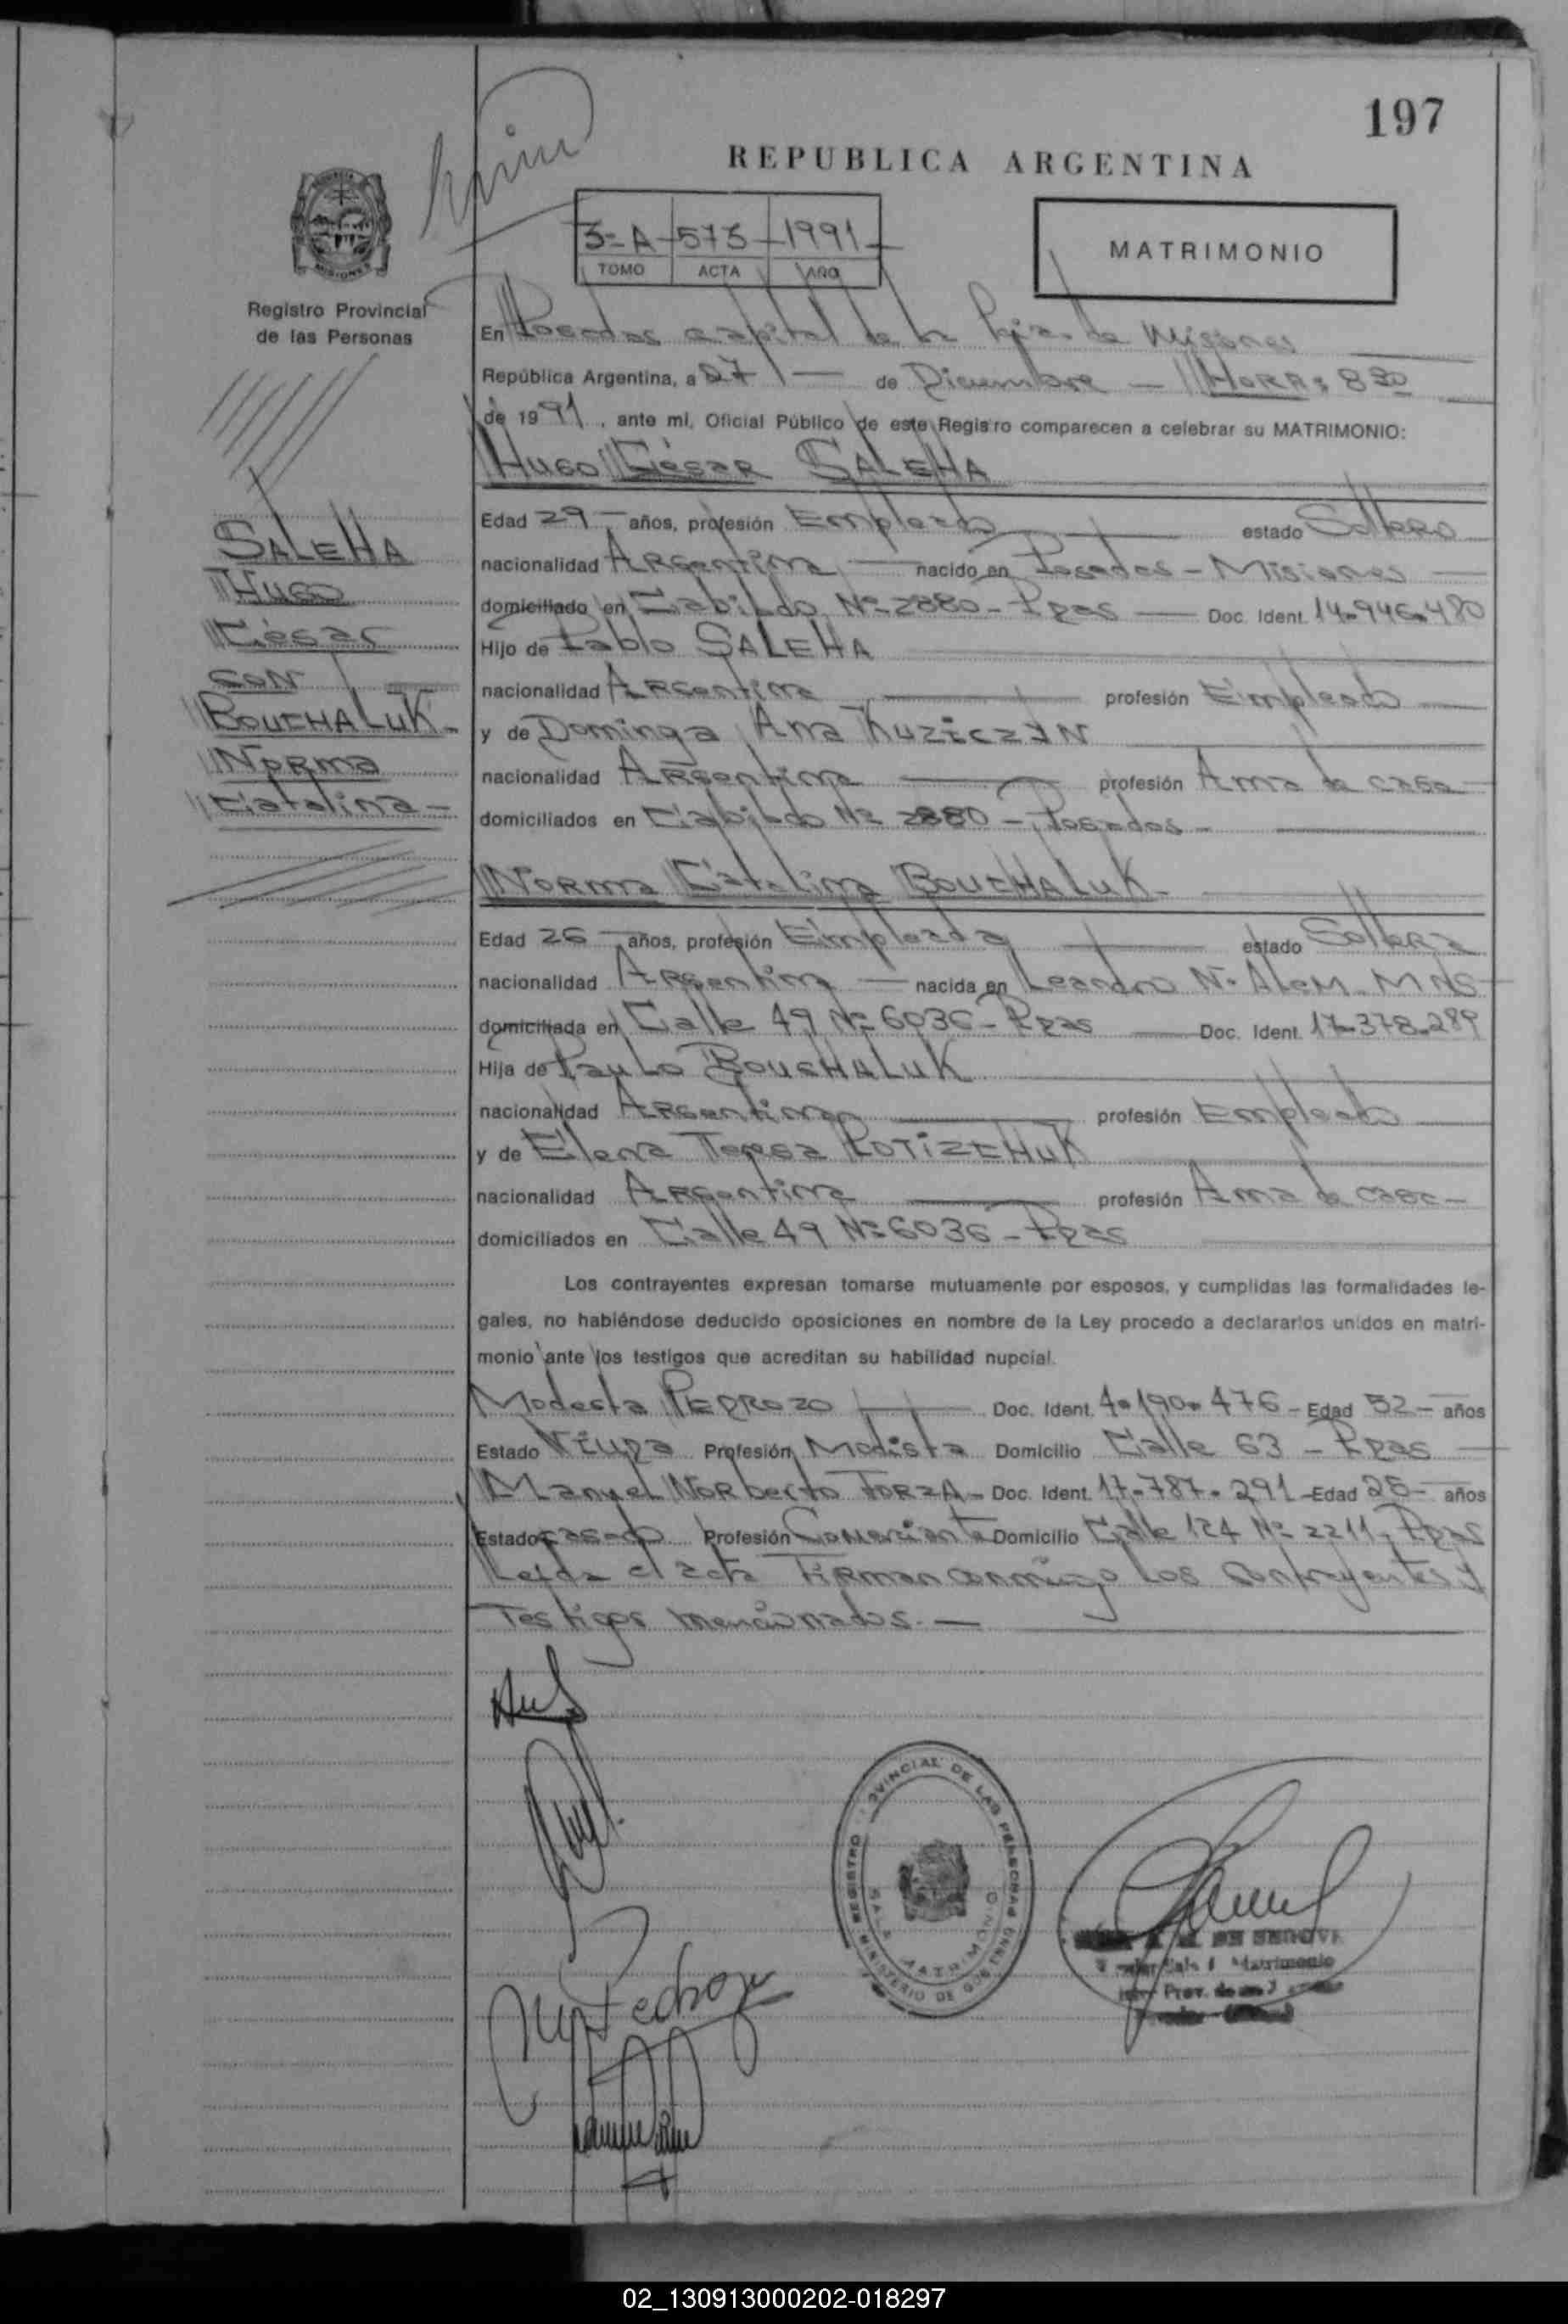 197
REPUBLICA ARGENTINA
3=A 573 1991
TOMO ACTA AÑO
MATRIMONIO
MISIONES
Registro Provincial
de las Personas
En Posadas capital de la Pcia. de Misiones
República Argentina, a 27 de Diciembre - HORA: 8 30
de 1991, ante mí, Oficial Público de este Registro comparecen a celebrar su MATRIMONIO:
HUGO César SALEHA
Edad 29 - años, profesión Empleado estado Soltero
nacionalidad Argentina nacido en Posadas - Misiones
domiciliado en Cabildo Nº 2880 - Pdas Doc. Ident. 14.946.480
Hijo de Pablo SALEHA
nacionalidad Argentina profesión Empleado
y de Dominga Ana KUZICZYN
nacionalidad Argentina profesión Ama de casa
domiciliados en Cabildo Nº 2880 - Posadas -
SALEHA
HUGO
César
CON
BOUCHALUK -
Norma
Catalina -
Norma Catalina BOUCHALUK -
Edad 26 - años, profesión Empleada estado Soltera
nacionalidad Argentina nacida en Leandro N. Alem - MNS
domiciliada en Calle 49 Nº 6036 - Pdas Doc. Ident. 17.378.289
Hija de Paulo BOUCHALUK
nacionalidad Argentina profesión Empleado
y de Elena Teresa
nacionalidad Argentina profesión Ama de casa -
domiciliados en Calle 49 Nº 6036 - Pdas
Los contrayentes expresan tomarse mutuamente por esposos, y cumplidas las formalidades le-
gales, no habiéndose deducido oposiciones en nombre de la Ley procedo a declararlos unidos en matri-
monio ante los testigos que acreditan su habilidad nupcial.
Modesta PEDROZO Doc. Ident. 4.190.476 - Edad 52 - años
Estado Viuda Profesión Modista Domicilio Calle 63 - Pdas
Manuel Norberto FORZA - Doc. Ident. 17.787.291 - Edad 25 - años
Estado casado Profesión Comerciante Domicilio Calle 124 Nº 2211, Pdas
Leída el acta Firman conmigo los contrayentes y
Testigos mencionados. -
REGISTRO PROVINCIAL DE LAS PERSONAS
MINISTERIO DE GOBIERNO
SALA MATRIMONIO
M Pedrozo
DE
Matrimonio
Prov. de
02_130913000202-018297